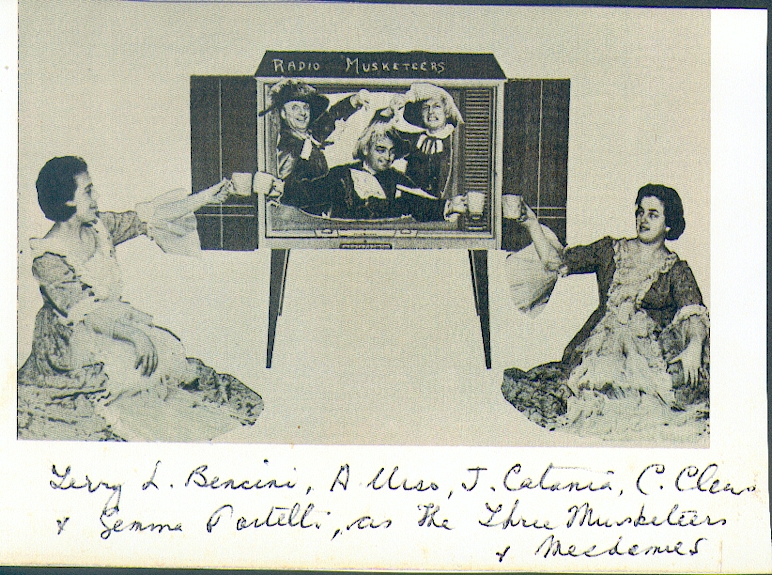 RADIO MUSKETEERS
Terry L. Bencini, A Urso, J. Catania, C. Clews
& Gemma Portelli, as The Three Musketeers
& Mesdames